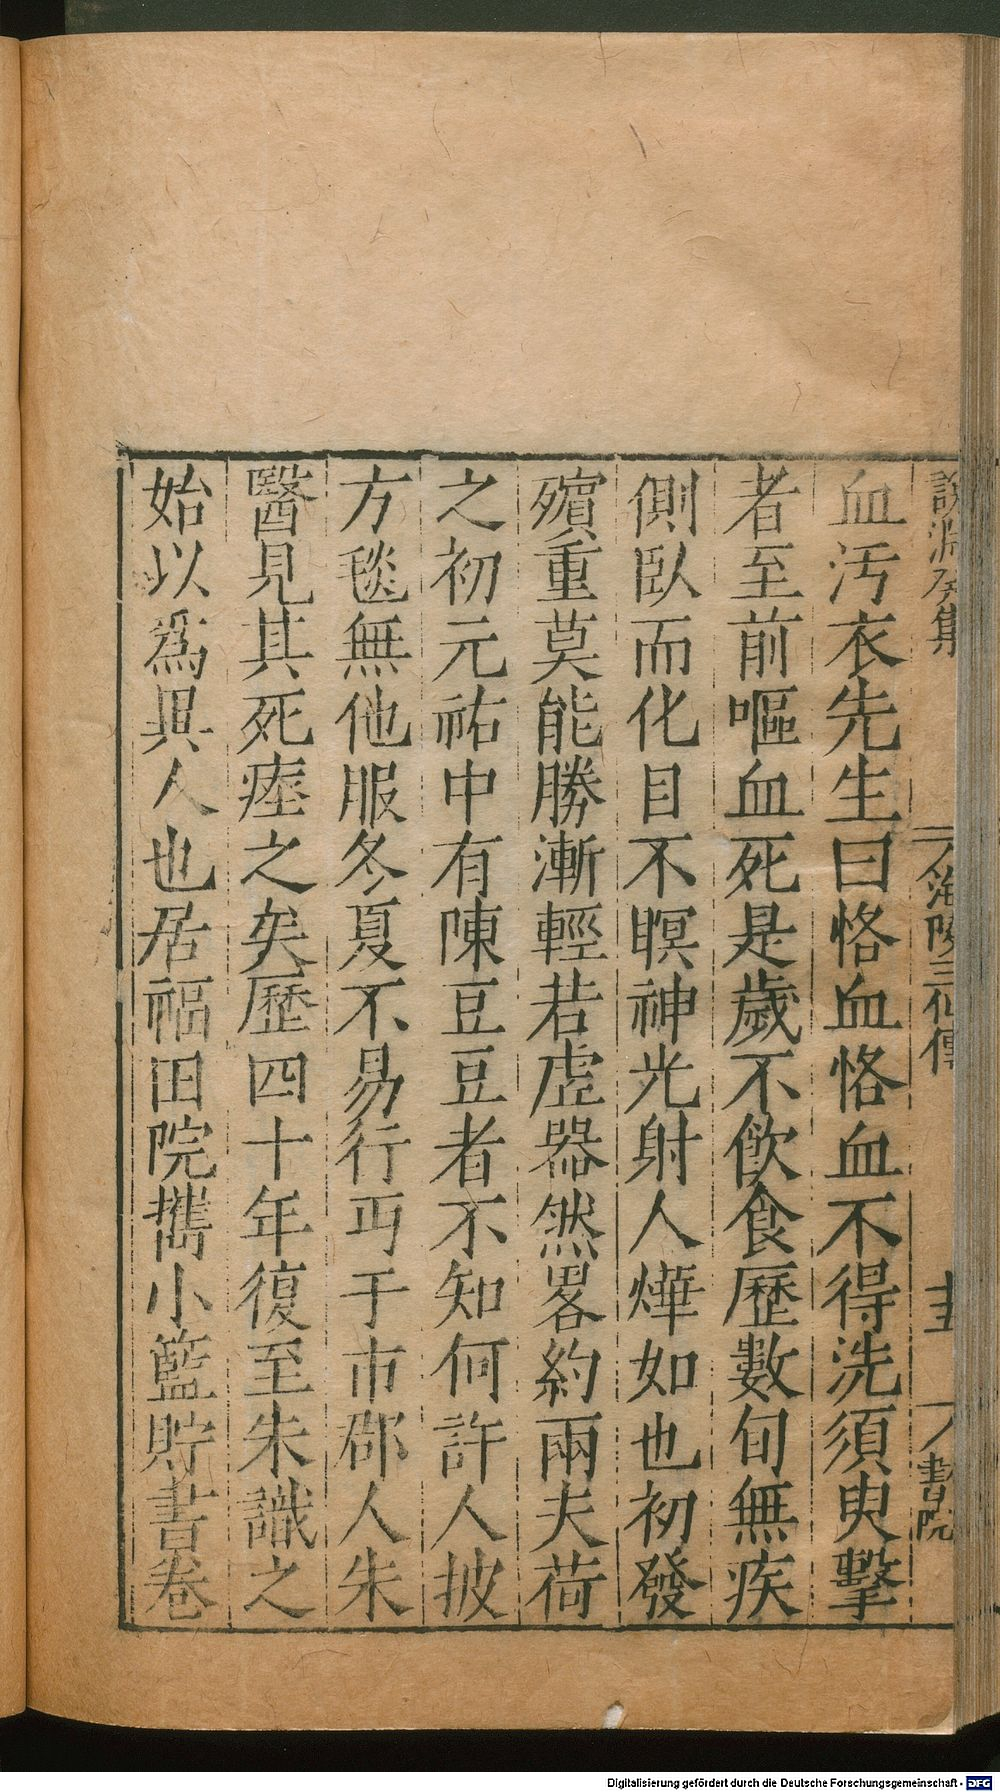 說淵癸集 海陵三仙傳 圭 書院
血汚衣先生曰恪血恪血不得洗須臾擊
者至前嘔血死是歲不飲食歷數旬無疾
側臥而化目不瞑神光射人燁如也初發
殯重莫能勝漸輕若虛器然畧約兩夫荷
之初元祐中有陳豆豆者不知何許人披
方毯無他服冬夏不易行丐于市郡人朱
醫見其死瘞之矣歷四十年復至朱識之
始以爲異人也居福田院擕小籃貯書卷
Digitalisierung gefördert durch die Deutsche Forschungsgemeinschaft - DFG